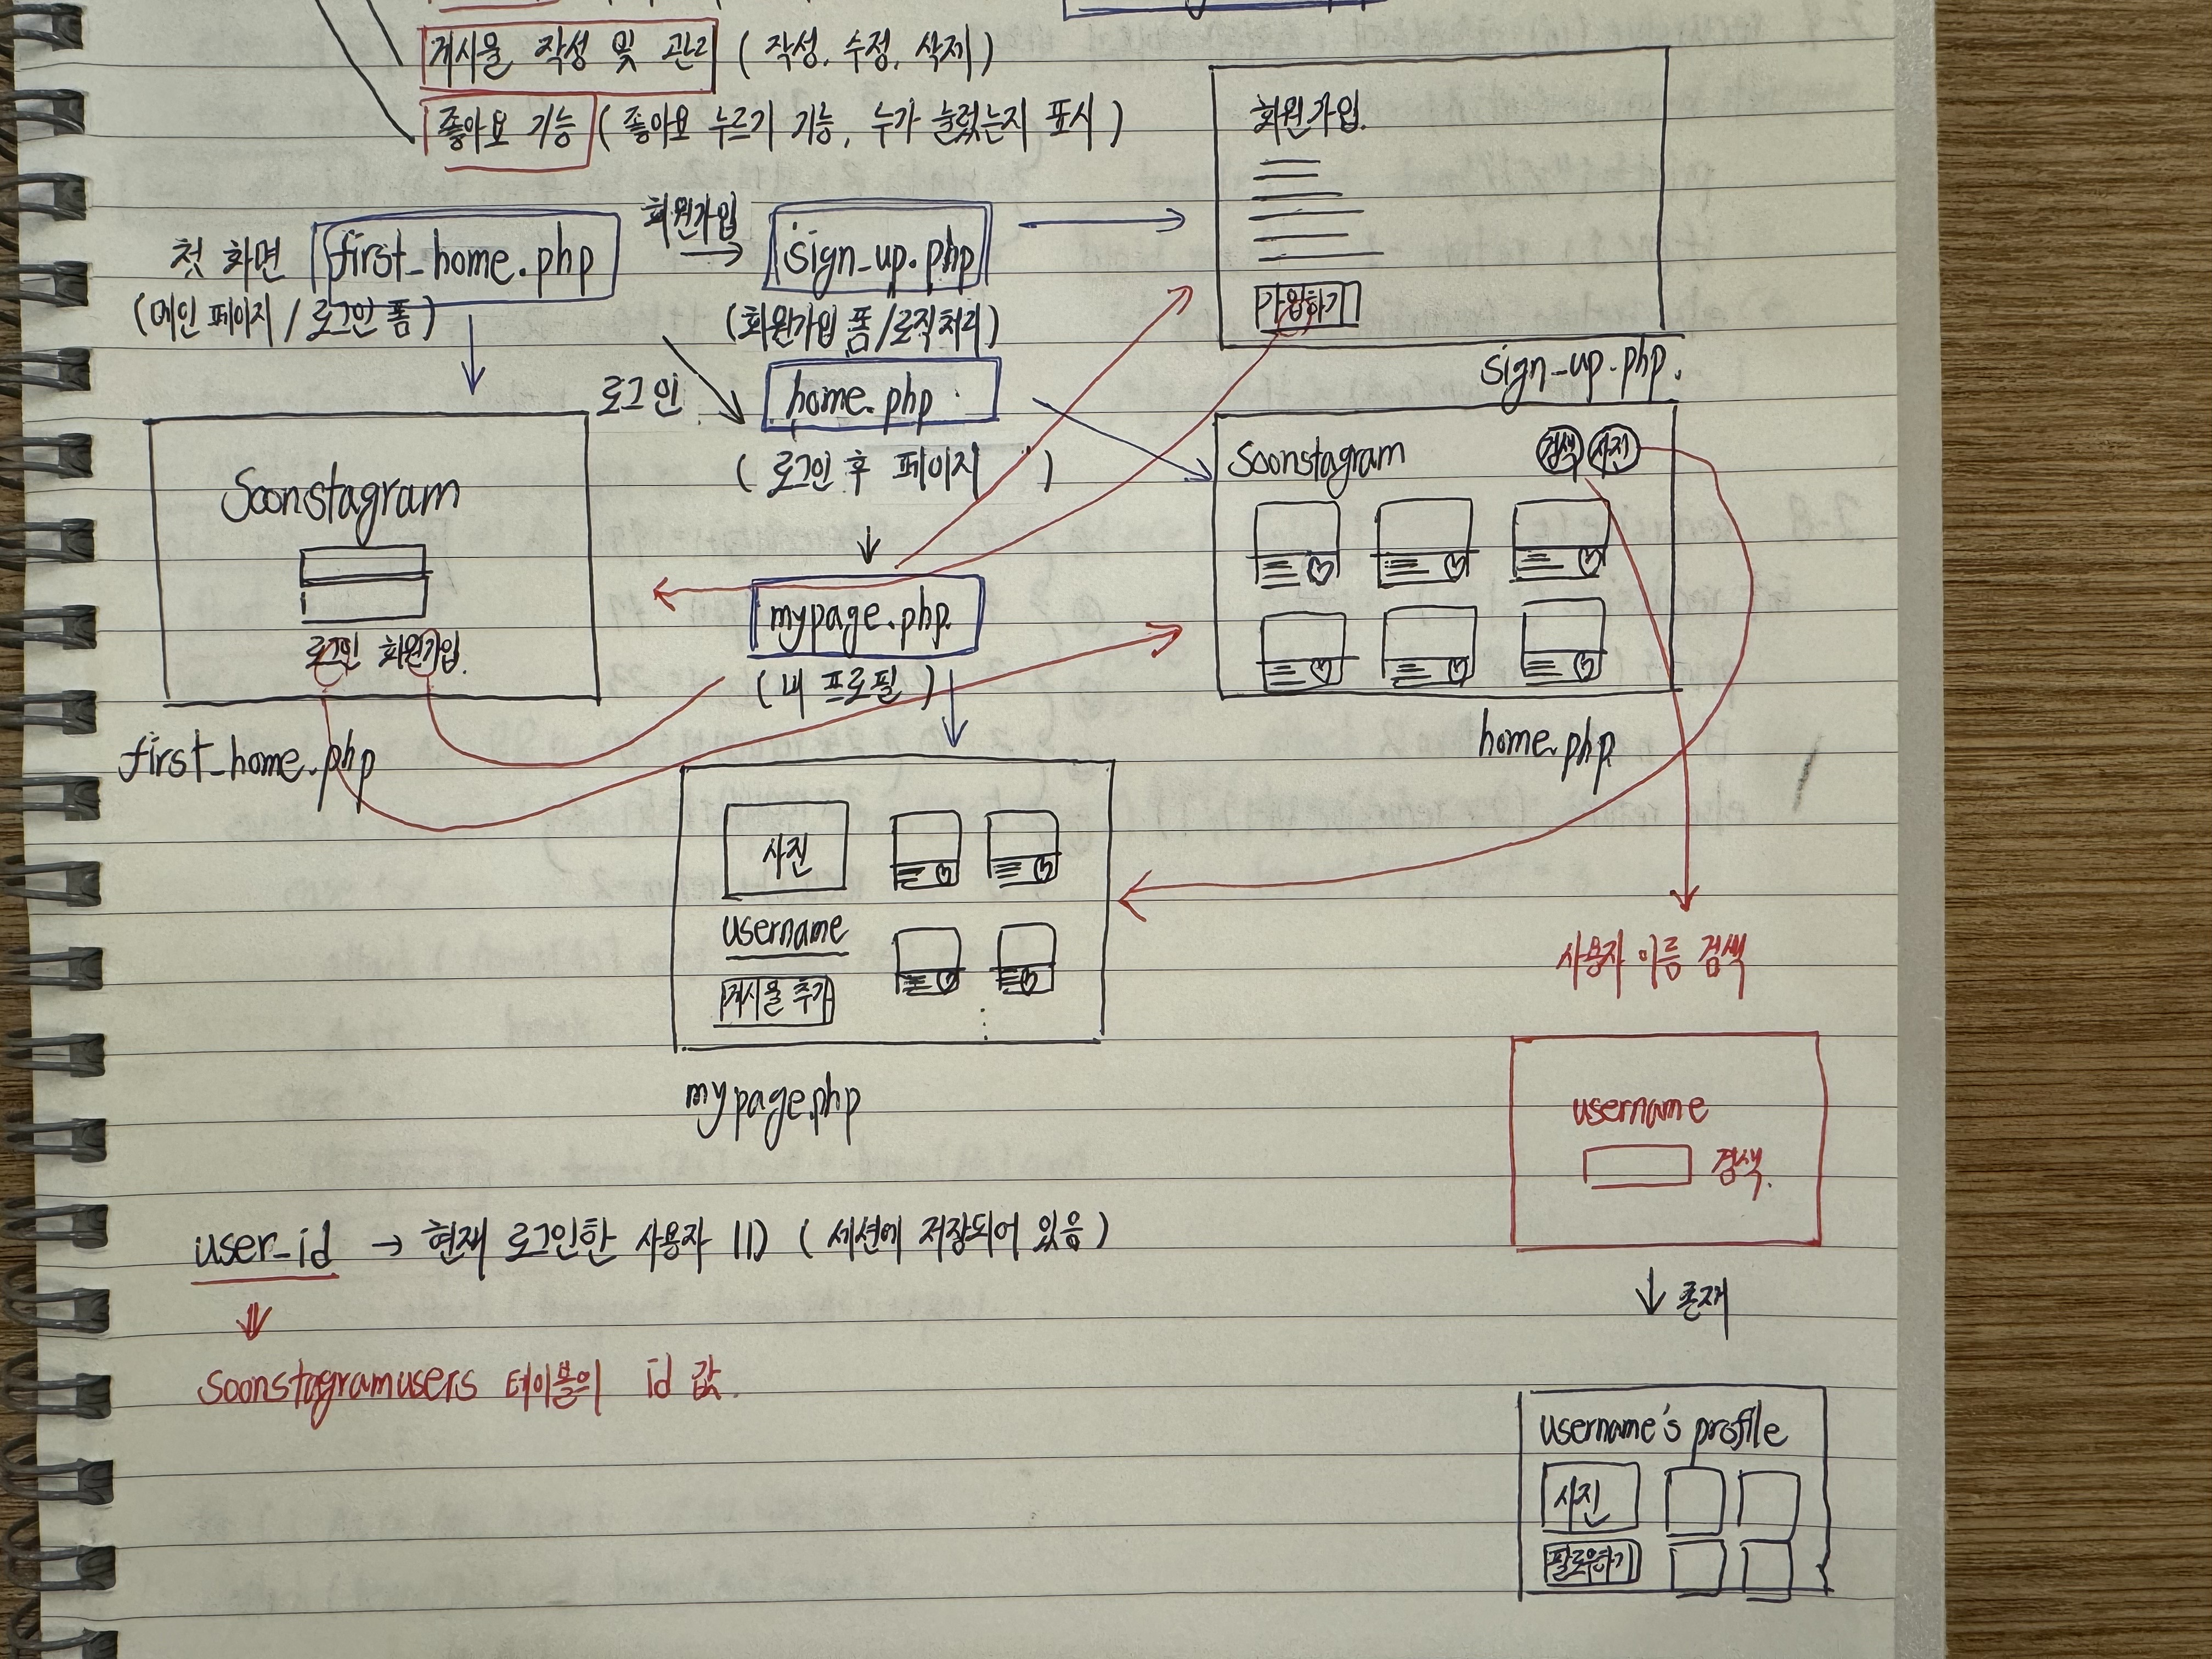 게시물 작성 및 관리 ( 작성, 수정, 삭제 )
좋아요 기능 ( 좋아요 누르기 기능, 누가 눌렀는지 표시 )
첫 화면 first_home.php
(메인 페이지 / 로그인 폼)
회원가입
→
sign_up.php
(회원가입 폼/로직처리)
로그인
home.php
( 로그인 후 페이지 )
↓
mypage.php.
( 내 프로필 )
회원가입.
가입하기
sign_up.php.
Soonstagram
로그인 회원가입.
first_home.php
Soonstagram 검색 사진
home.php
사진
username
게시물 추가
mypage.php
사용자 이름 검색
username
검색.
↓ 존재
username's profile
사진
팔로우하기
user_id → 현재 로그인한 사용자 ID ( 세션에 저장되어 있음 )
⇓
soonstagramusers 테이블의 id 값.